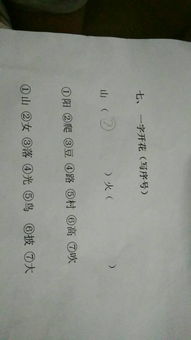 七、一字开花（写序号）
山（⑦ ）火（ ）
①阳 ②爬 ③豆 ④路 ⑤村 ⑥高 ⑦吹
①山 ②女 ③落 ④光 ⑤鸟 ⑥披 ⑦大